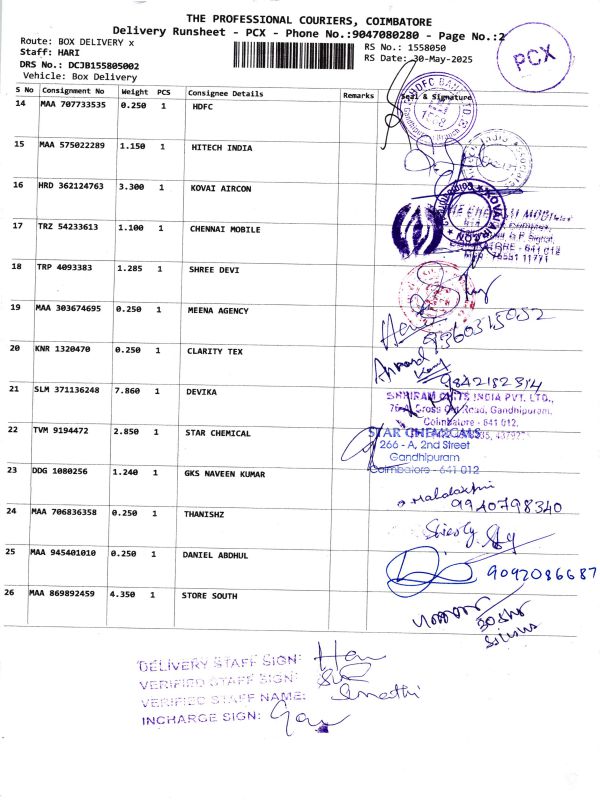 THE PROFESSIONAL COURIERS, COIMBATORE
Delivery Runsheet - PCX - Phone No.:9047080280 - Page No.:2
Route: BOX DELIVERY x
RS No.: 1558050
Staff: HARI
RS Date: 30-May-2025
DRS No.: DCJB155805002
Vehicle: Box Delivery
PCX
S No Consignment No Weight PCS Consignee Details Remarks Seal & Signature
14 MAA 707733535 0.250 1 HDFC
15 MAA 575022289 1.150 1 HITECH INDIA
16 HRD 362124763 3.300 1 KOVAI AIRCON
17 TRZ 54233613 1.100 1 CHENNAI MOBILE
18 TRP 4093383 1.285 1 SHREE DEVI
19 MAA 303674695 0.250 1 MEENA AGENCY
9360315052
20 KNR 1320470 0.250 1 CLARITY TEX
9842182314
21 SLM 371136248 7.860 1 DEVIKA
SHRIRAM CHITS INDIA PVT. LTD.,
Cross Cut Road, Gandhipuram,
Coimbatore - 641 012.
22 TVM 9194472 2.850 1 STAR CHEMICAL
STAR CHEMICALS
266 - A, 2nd Street
Gandhipuram
Coimbatore - 641 012
23 DDG 1080256 1.240 1 GKS NAVEEN KUMAR
Mahalaxmi
9940798340
24 MAA 706836358 0.250 1 THANISHZ
25 MAA 945401010 0.250 1 DANIEL ABDHUL
9092086687
26 MAA 869892459 4.350 1 STORE SOUTH
DELIVERY STAFF SIGN:
VERIFIED STAFF SIGN:
VERIFIED STAFF NAME:
INCHARGE SIGN: